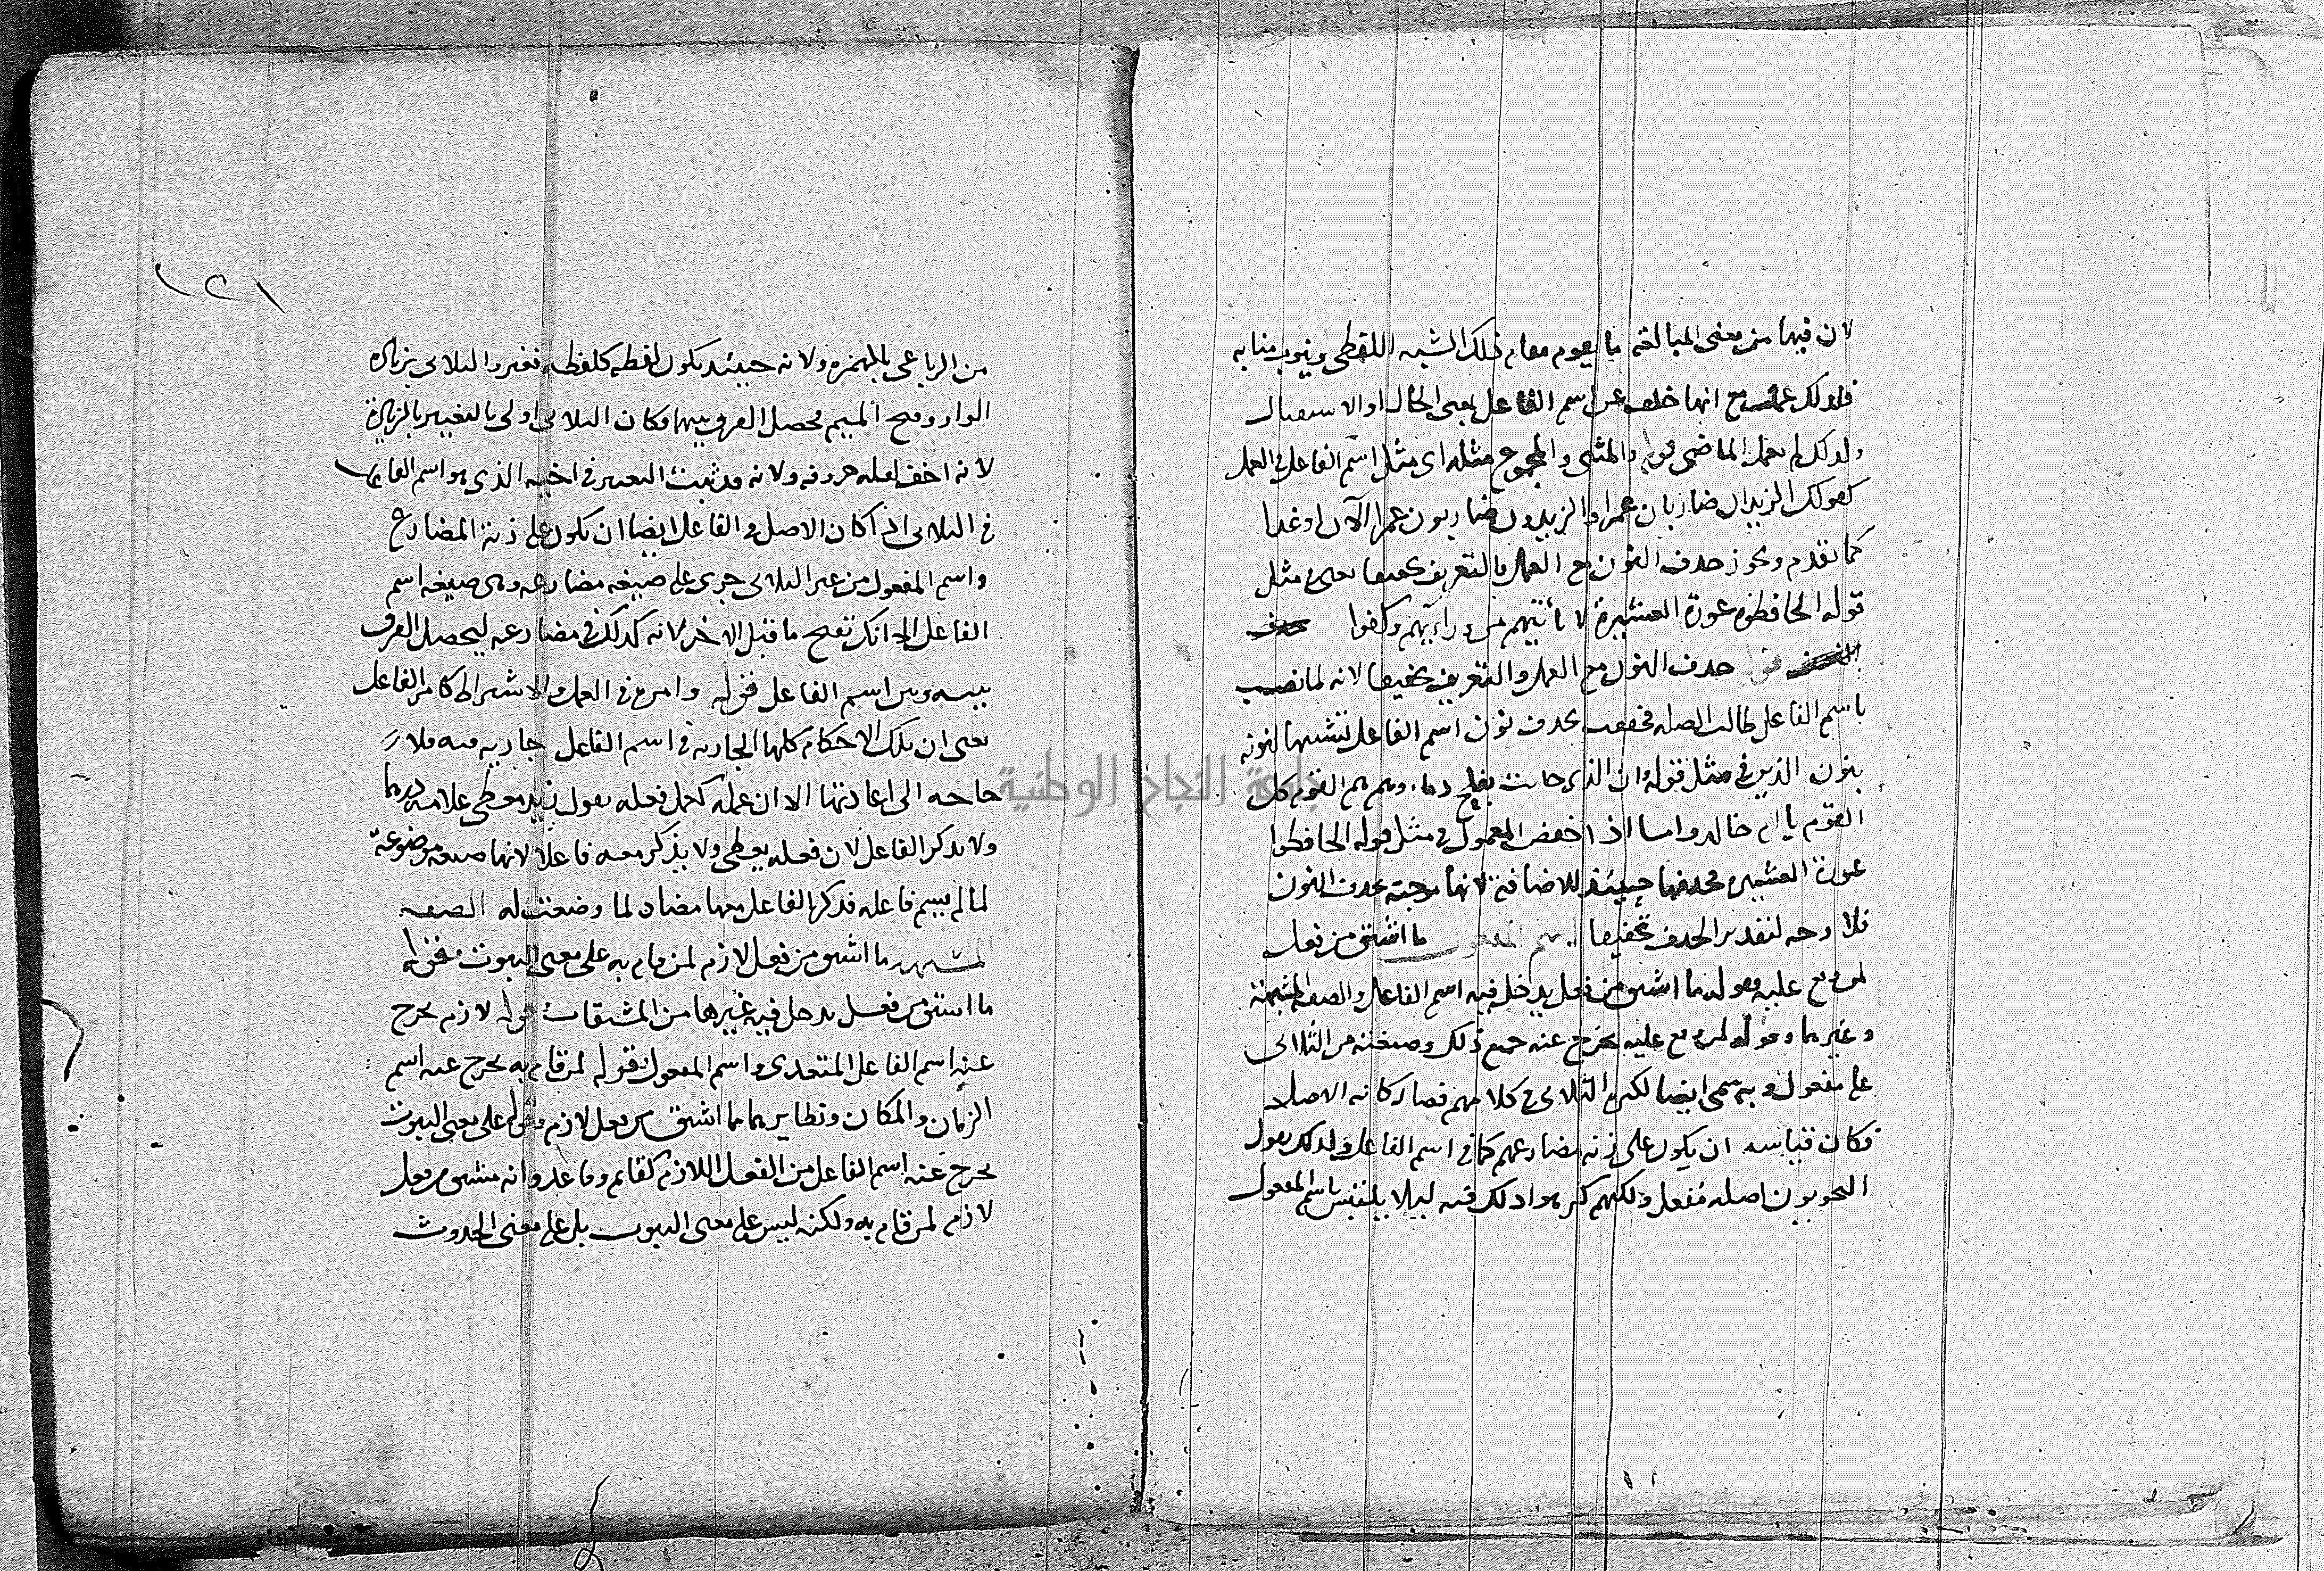 لان فيها من معنى المبالغة ما يقوم مقام ذلك الشبه اللفظي وينوب منابه
فلذلك عملت مع انها خلف عن اسم الفاعل بمعنى الحال او الاستقبال
ولذلك لم تعمل الماضي قوله والمثنى والمجموع مثله اي مثل اسم الفاعل في العمل
كقولك الزيدان ضاربان عمرا والزيدون ضاربون عمرا الآن او غدا
كما تقدم ويجوز حذف النون مع العمل والتعريف تخفيفا يعني في مثل
قوله الحافظو عورة العشيرة لا يأتيهم من ورائهم وكفوا
قوله حذف النون مع العمل والتعريف تخفيفا لانه لما نصب
باسم الفاعل طالت الصلة فخففت بحذف نون اسم الفاعل تشبيها لنونه
بنون الذين في مثل قوله وان الذي حانت بفلج دماءهم هم القوم كل
القوم يا ام خالد واما اذا خفض المعمول في مثل قوله الحافظوا
عورة العشيرة فحذفها حينئذ للاضافة لانها موجبة بحذف النون
فلا وجه لتقدير الحذف تخفيفا اسم المفعول ما اشتق من فعل
لمن وقع عليه فقوله ما اشتق من فعل يدخل فيه اسم الفاعل والصفة المشبهة
وغيرهما وقوله لمن وقع عليه يخرج عنه جميع ذلك وصيغته من الثلاثي
على مفعول وبه سمي ايضا لكثرة الثلاثي في كلامهم فصار كانه الاصل
فكان قياسه ان يكون على زنة مضارعهم كما في اسم الفاعل ولذلك يقول
النحويون اصله مفعل ولكنهم كرهوا ذلك فيه ليلا يلتبس باسم المفعول
١٢١
من الرباعي بالهمزة ولانه حينئذ يكون لفظه كلفظه فغيروا الثلاثي بزيادة
الواو وفتح الميم فحصل الفرق بينهما وكان الثلاثي اولى بالتغيير بالزيادة
لانه اخف لقلة حروفه ولانه قد ثبت التغيير في اخيه الذي هو اسم الفاعل
في الثلاثي اذ كان الاصل في الفاعل ايضا ان يكون على زنة المضارع
واسم المفعول من غير الثلاثي جرى على صيغة مضارعه وهي صيغة اسم
الفاعل الا انك تفتح ما قبل الاخر لانه كذلك في مضارعه ليحصل الفرق
بينه وبين اسم الفاعل قوله وامره في العمل والاشتراط كامر الفاعل
يعني ان تلك الاحكام كلها الجارية في اسم الفاعل جارية فيه فلا
حاجة الى اعادتها الا ان عمله كعمل فعله تقول زيد معطى غلامه درهما
ولا يذكر الفاعل لان فعله يعطى ولا يذكر معه فاعلا لانها صيغة موضوعة
لما لم يسم فاعله فذكر الفاعل معها مضاد لما وضعت له الصفة
المشبهة ما اشتق من فعل لازم لمن قام به على معنى الثبوت فقوله
ما اشتق من فعل يدخل فيه غيرها من المشتقات قوله لازم يخرج
عنه اسم الفاعل المتعدي واسم المفعول قوله لمن قام به يخرج عنه اسم
الزمان والمكان ونظايرهما مما اشتق من فعل لازم وقوله على معنى الثبوت
يخرج عنه اسم الفاعل من الفعل اللازم كقايم وقاعد وانه مشتق من فعل
لازم لمن قام به ولكنه ليس على معنى الثبوت بل على معنى الحدوث
جامعة النجاح الوطنية